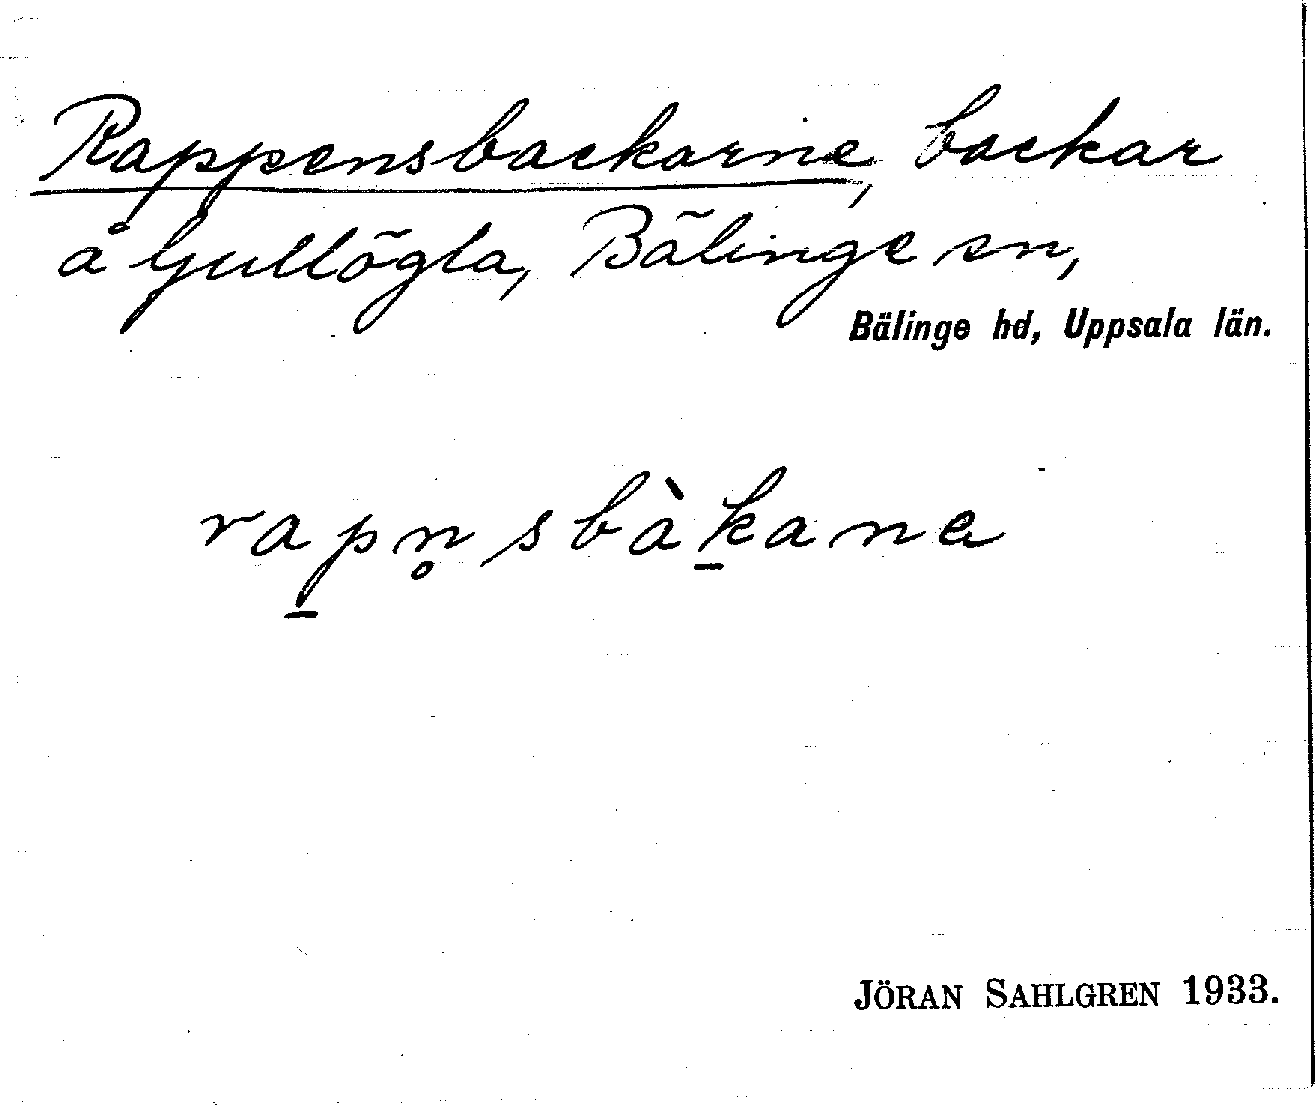 Rappensbackarne, backar
å Gullögla, Bälinge sn,
Bälinge hd, Uppsala län.
rap̲n̥sbàk̲ane
JÖRAN SAHLGREN 1933.